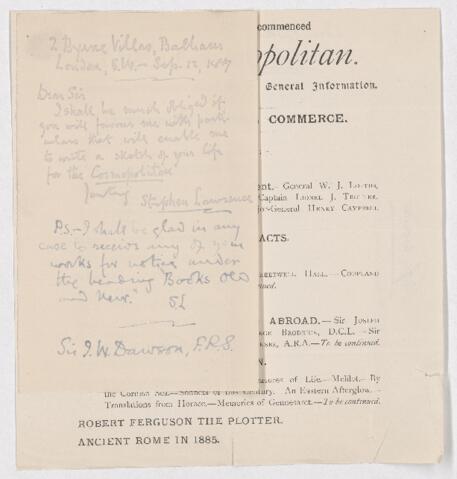 2 Byrne Villas, Balham
London, S.W. - Sep. 12, 1887
Dear Sir
I shall be much obliged if
you will favour me with parti-
culars that will enable me
to write a sketch of your life
for the Cosmopolitan
Yours truly
Stephen Lawrence
P.S. - I shall be glad in any
case to receive any of your
works for notice under
the heading "Books Old
and New."
S L
Sir J. W. Dawson, F.R.S.
commenced
opolitan.
General Information.
COMMERCE.
ent.- General W. J.
Captain Lionel J. Trotter,
or-General Henry Campbell
ACTS.
Hall.-Copland
ABROAD.-Sir Joseph
D.C.L.-Sir
A.R.A.-To be continued.
of Life.-Melilot.-By
An Eastern Afterglow.-
Translations from Horace.-Memories of Gennesaret.-To be continued.
ROBERT FERGUSON THE PLOTTER.
ANCIENT ROME IN 1885.